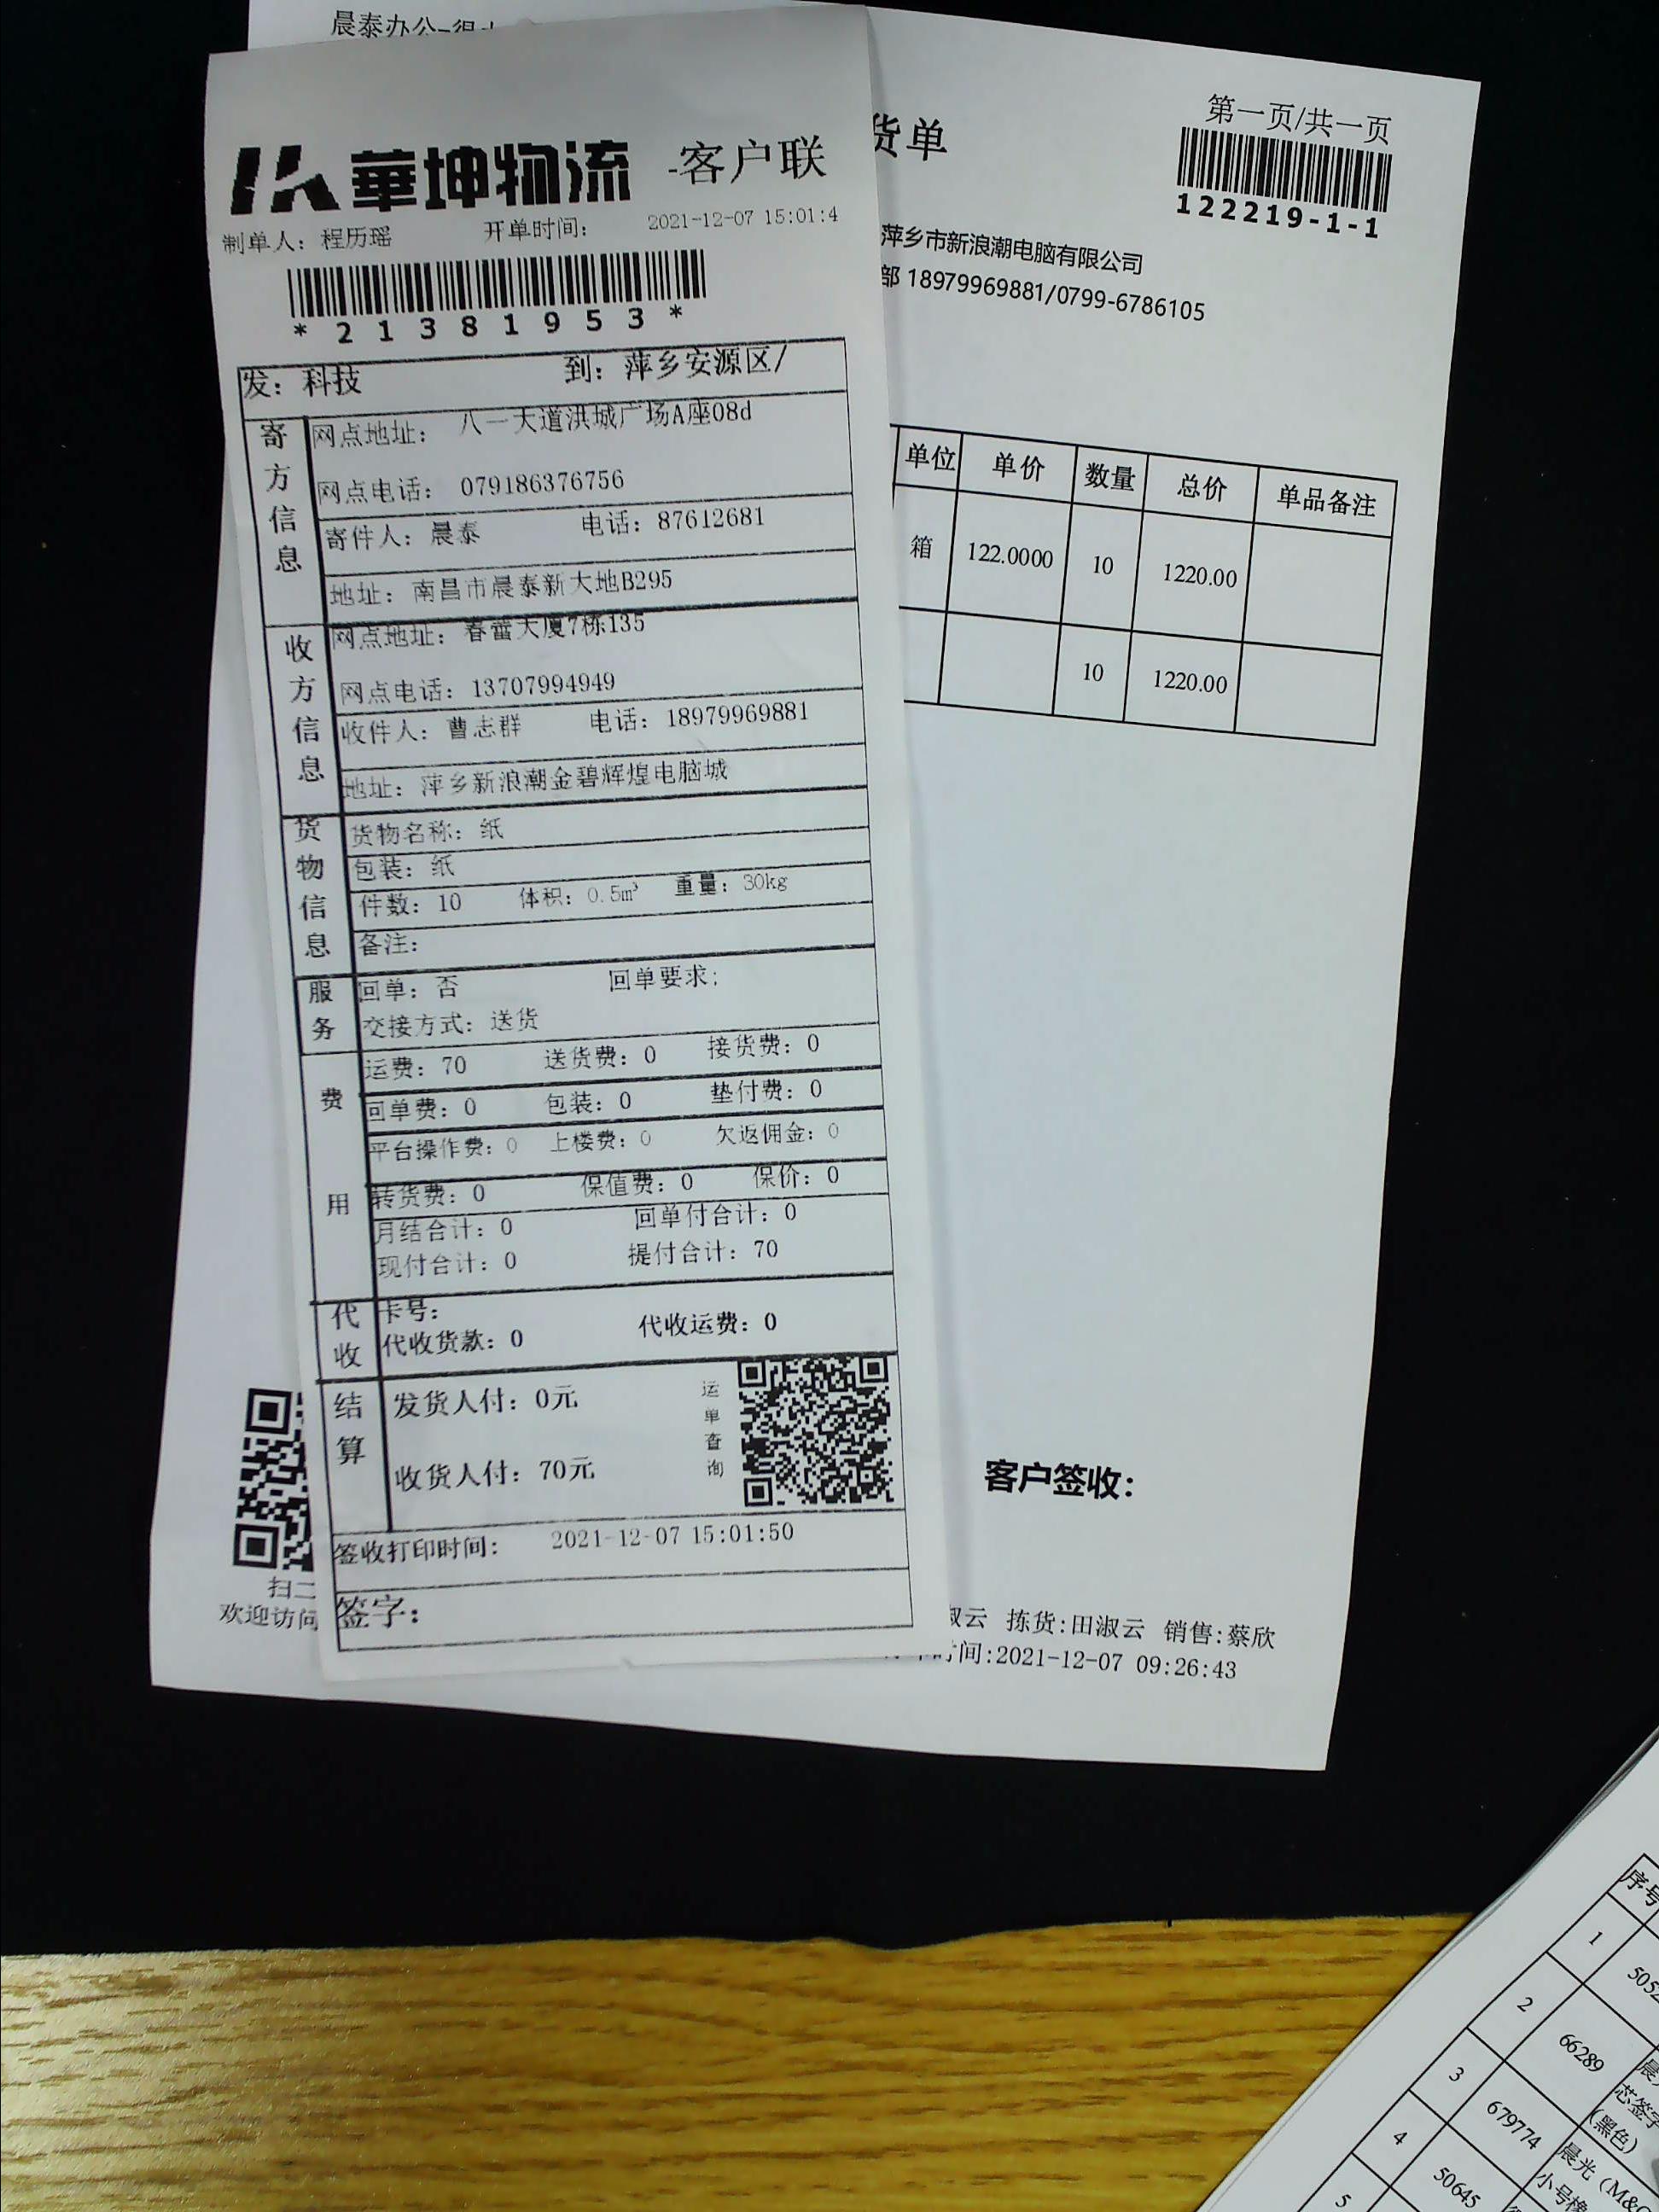 晨泰办公
華坤物流 -客户联
制单人: 程历瑶 开单时间: 2021-12-07 15:01:4
*21381953*
发: 科技 到: 萍乡安源区/
寄方信息
网点地址: 八一大道洪城广场A座08d
网点电话: 079186376756
寄件人: 晨泰 电话: 87612681
地址: 南昌市晨泰新大地B295
收方信息
网点地址: 春蕾大厦7栋135
网点电话: 13707994949
收件人: 曹志群 电话: 18979969881
地址: 萍乡新浪潮金碧辉煌电脑城
货物信息
货物名称: 纸
包装: 纸
件数: 10 体积: 0.5m³ 重量: 30kg
备注:
服务
回单: 否 回单要求:
交接方式: 送货
费用
运费: 70 送货费: 0 接货费: 0
回单费: 0 包装: 0 垫付费: 0
平台操作费: 0 上楼费: 0 欠返佣金: 0
转货费: 0 保值费: 0 保价: 0
月结合计: 0 回单付合计: 0
现付合计: 0 提付合计: 70
代收
卡号:
代收货款: 0 代收运费: 0
结算
发货人付: 0元
收货人付: 70元
运单查询
签收打印时间: 2021-12-07 15:01:50
签字:
货单
第一页/共一页
122219-1-1
萍乡市新浪潮电脑有限公司
部 18979969881/0799-6786105
单位 单价 数量 总价 单品备注
箱 122.0000 10 1220.00
10 1220.00
客户签收:
扫二
欢迎访问
淑云 拣货:田淑云 销售:蔡欣
时间:2021-12-07 09:26:43
序号
1 5052
2 66289
芯签字
(黑色)
3 679774 晨光 (M&G
小号橡
4 50645
5